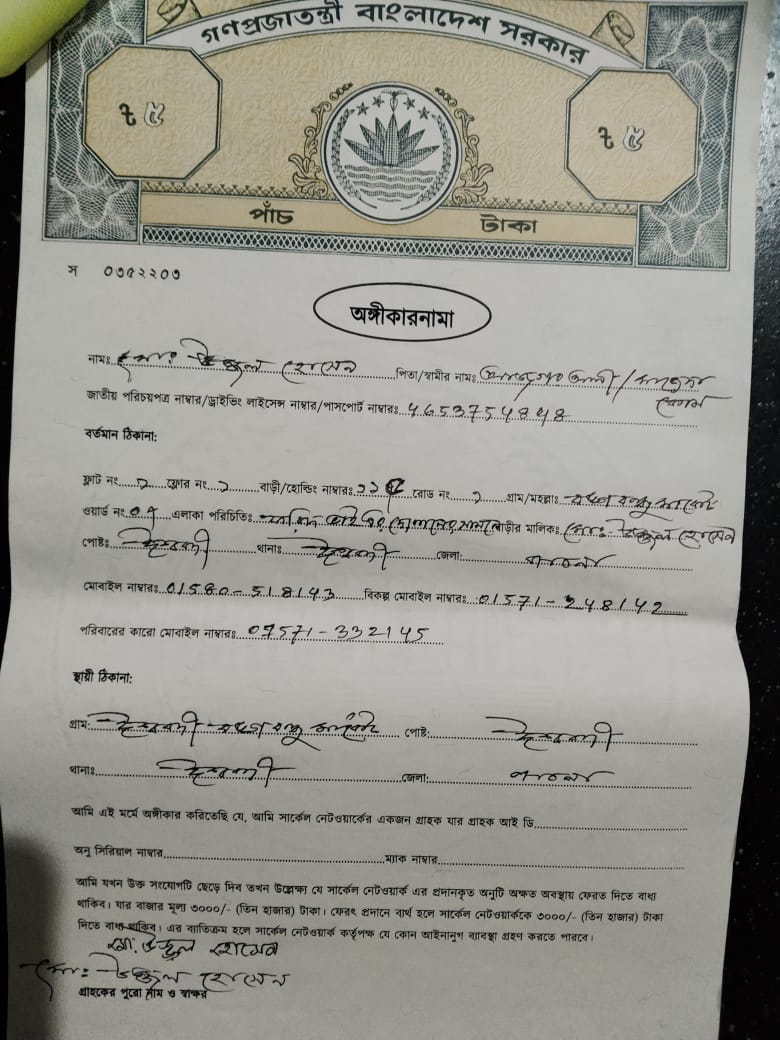 গণপ্রজাতন্ত্রী বাংলাদেশ সরকার
৳ ৫ ৳ ৫
পাঁচ টাকা
স ০৩৫২২০৩
অঙ্গীকারনামা
নামঃ মোঃ উজ্জ্বল হোসেন পিতা/স্বামীর নামঃ
জাতীয় পরিচয়পত্র নাম্বার/ড্রাইভিং লাইসেন্স নাম্বার/পাসপোর্ট নাম্বারঃ 4653754848
বর্তমান ঠিকানা:
ফ্লাট নং ফ্লোর নং বাড়ী/হোল্ডিং নাম্বারঃ রোড নং গ্রাম/মহল্লাঃ
ওয়ার্ড নং এলাকা পরিচিতিঃ বাড়ীর মালিক: মোঃ উজ্জ্বল হোসেন
পোষ্টঃ ঈশ্বরদী থানাঃ ঈশ্বরদী জেলা: পাবনা
মোবাইল নাম্বারঃ 01580-518143 বিকল্প মোবাইল নাম্বারঃ 01571-248142
পরিবারের কারো মোবাইল নাম্বারঃ 07571-332145
স্থায়ী ঠিকানা:
গ্রাম: ঈশ্বরদী পোষ্ট: ঈশ্বরদী
থানাঃ ঈশ্বরদী জেলা: পাবনা
আমি এই মর্মে অঙ্গীকার করিতেছি যে, আমি সার্কেল নেটওয়ার্কের একজন গ্রাহক যার গ্রাহক আই ডি
অনু সিরিয়াল নাম্বার ম্যাক নাম্বার
আমি যখন উক্ত সংযোগটি ছেড়ে দিব তখন উল্লেক্ষ্য যে সার্কেল নেটওয়ার্ক এর প্রদানকৃত অনুটি অক্ষত অবস্থায় ফেরত দিতে বাধ্য
থাকিব। যার বাজার মূল্য ৩০০০/- (তিন হাজার) টাকা। ফেরৎ প্রদানে ব্যর্থ হলে সার্কেল নেটওয়ার্ককে ৩০০০/- (তিন হাজার) টাকা
দিতে বাধ্য থাকিব। এর ব্যতিক্রম হলে সার্কেল নেটওয়ার্ক কর্তৃপক্ষ যে কোন আইনানুগ ব্যাবস্থা গ্রহণ করতে পারবে।
মো. উজ্জ্বল হোসেন
মোঃ উজ্জ্বল হোসেন
গ্রাহকের পুরো নাম ও স্বাক্ষর